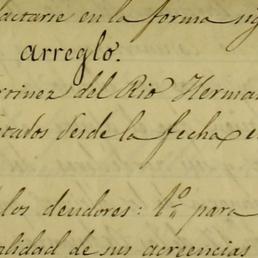 actarse en la forma sig
arreglo.
rtinez del Rio Herma
tados desde la fecha e
los deudores: 1º para
alidad de sus acreencias